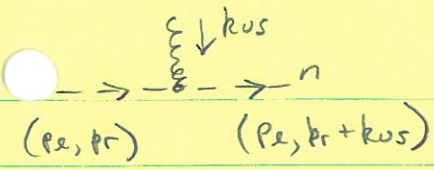 ↓ kus
n
(pe, pr) (Pe, kr + kus)